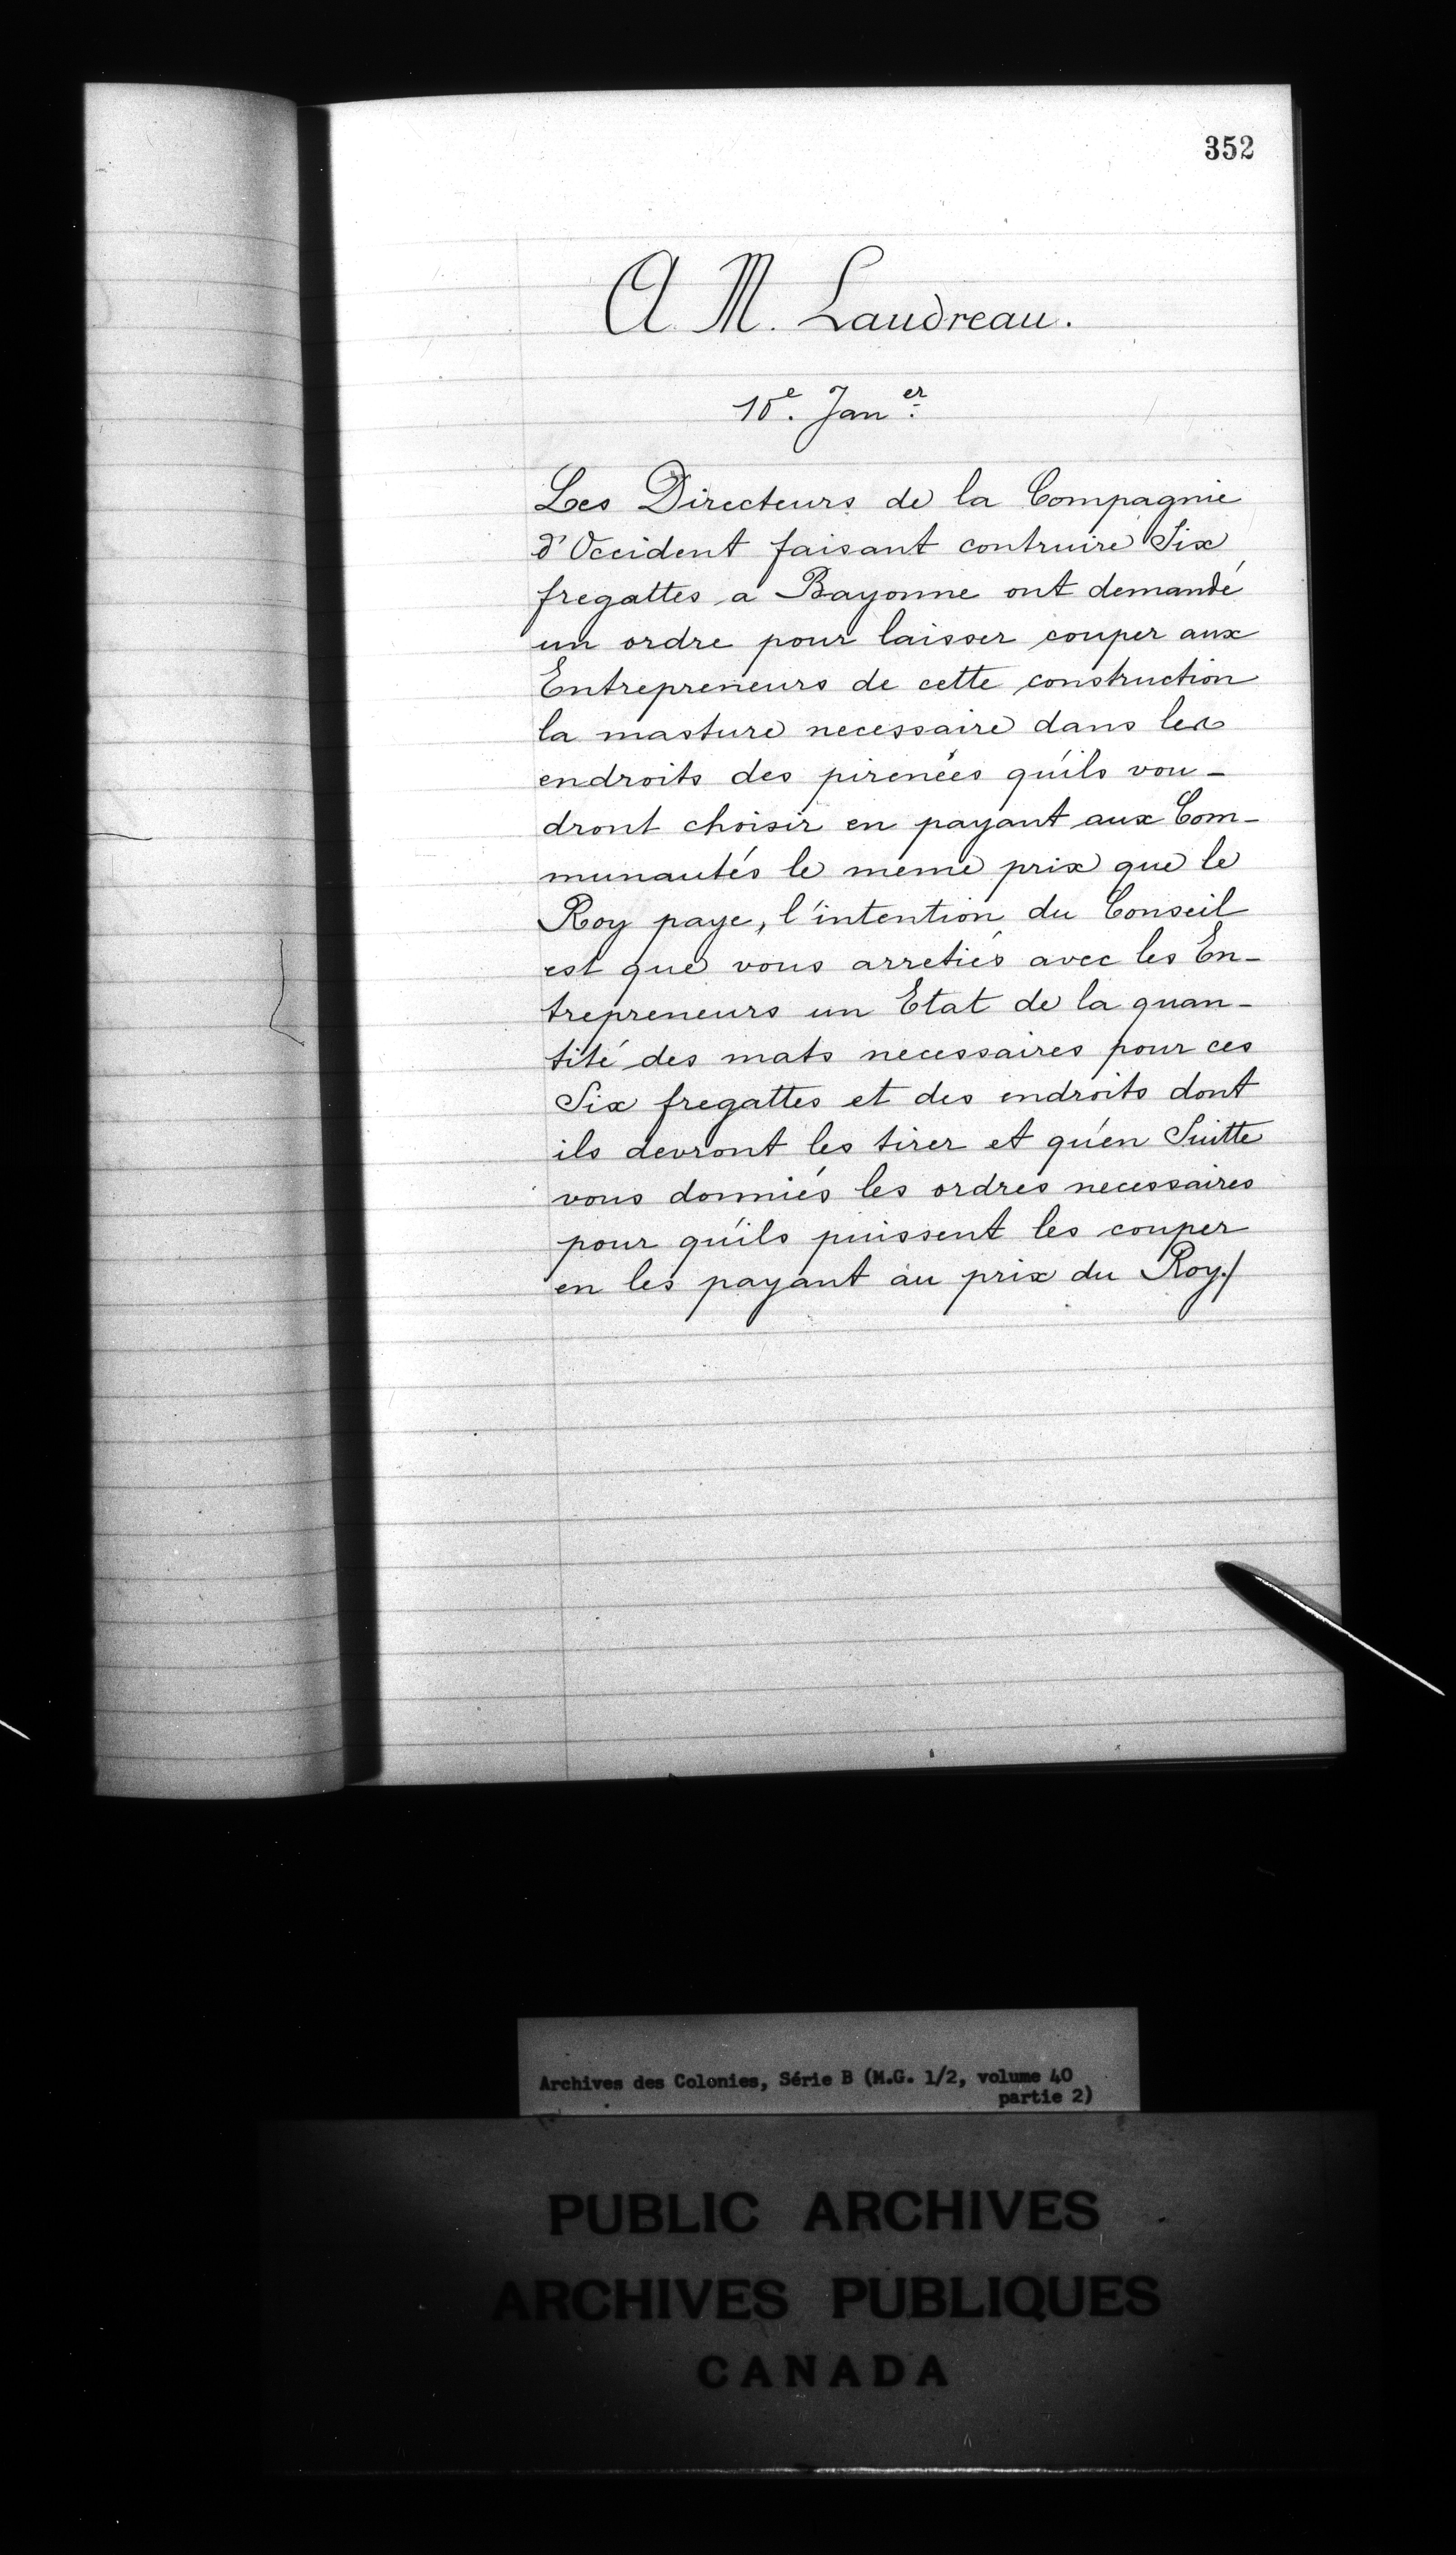 352
A M. Laudreau.
10e. Janer.
Les Directeurs de la Compagnie
d'Occident faisant contruire Six
fregattes a Bayonne ont demandé
un ordre pour laisser couper aux
Entrepreneurs de cette construction
la masture necessaire dans les
endroits des pirenées qu'ils vou-
dront choisir en payant aux Com-
munautés le meme prix que le
Roy paye, l'intention du Conseil
est que vous arretiés avec les En-
trepreneurs un Etat de la quan-
tité des mats necessaires pour ces
Six fregattes et des endroits dont
ils devront les tirer et qu'en Suitte
vous donniés les ordres necessaires
pour qu'ils puissent les couper
en les payant au prix du Roy./
Archives des Colonies, Série B (M.G. 1/2, volume 40
partie 2)
PUBLIC ARCHIVES
ARCHIVES PUBLIQUES
CANADA